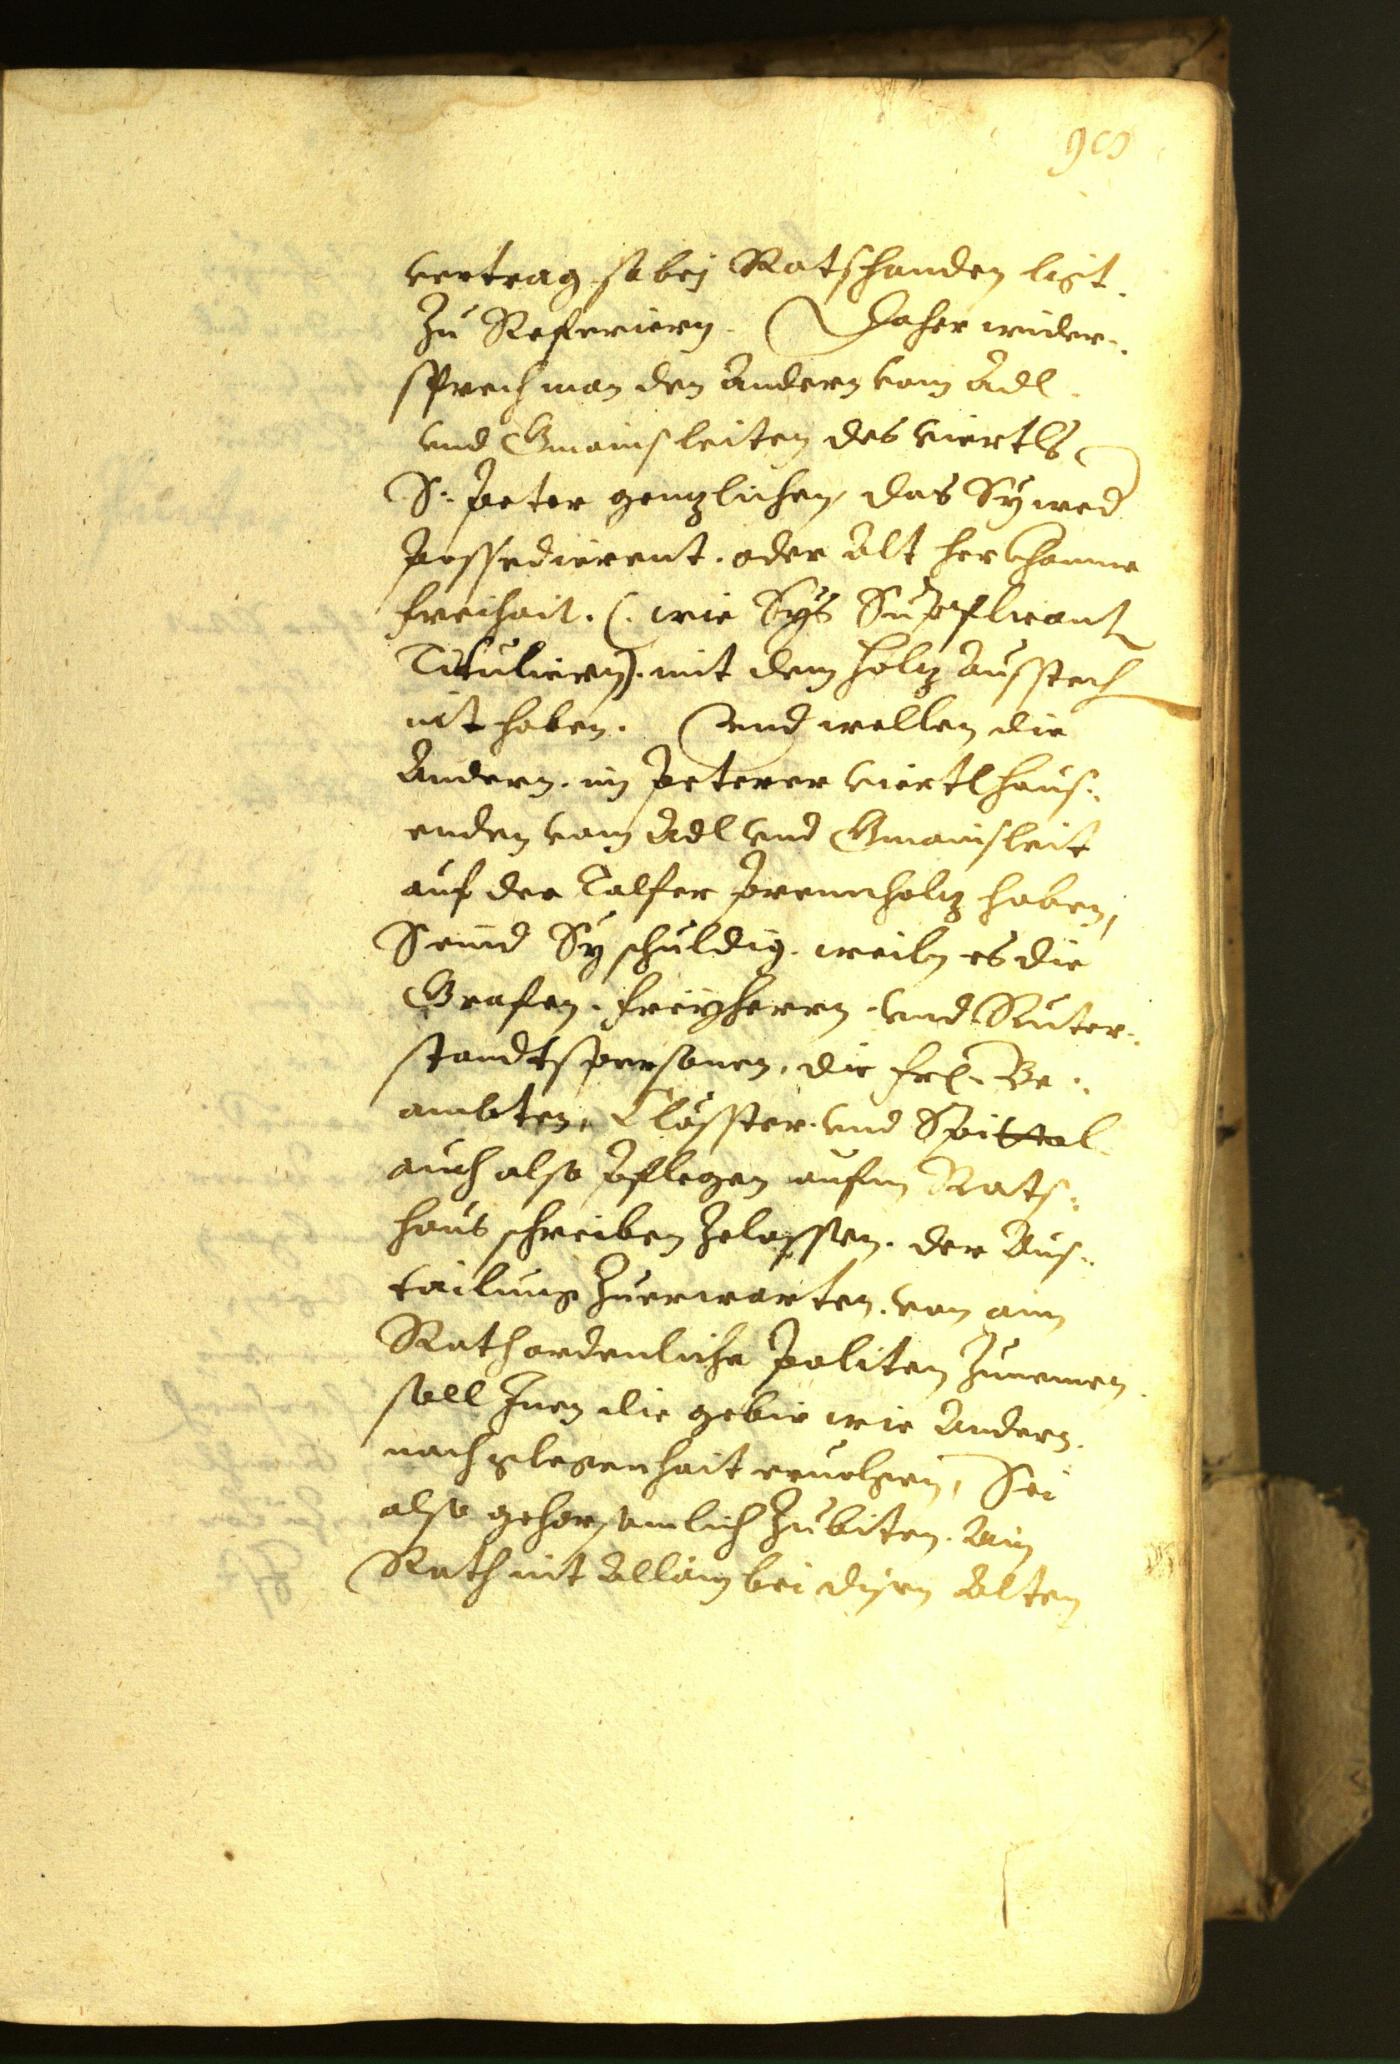 vertrag so bej Ratshanden ligt.
Zu Referiern. Daher wider-
sprech man den Andern vom Adl
vnd Gmainsleiten des viertls
S: Peter genzlichen, das Sy wed
Possedierent. oder Alt herkhomne
freihait. (. wie Sÿs Supplicant
Titulieren). mit dem holz Ausstech
nit haben. Vnd wellen die
Andern. im Peterer viertl haus-
enden vom Adl vnd Gmainsleit
auf der Talfer Prennholz haben,
Seind Sy schuldig. weiln es die
Grafen. freyherrn. vnd Ritter-
standtspersonen, die frl. Be-
ambten, Clösster. vnd Spittal
auch also Pflegen aufm Rats-
haus schreiben Zelassen. der Aus-
tailung Zuerwarten. von aim
Rath ordenliche Politen Zunemen.
soll Inen die gebir wie Andern.
nach glegenhait ervolgen, Sei
also gehorsamlich Zubiten. Ain
Rath nit Allain bei disen Alten